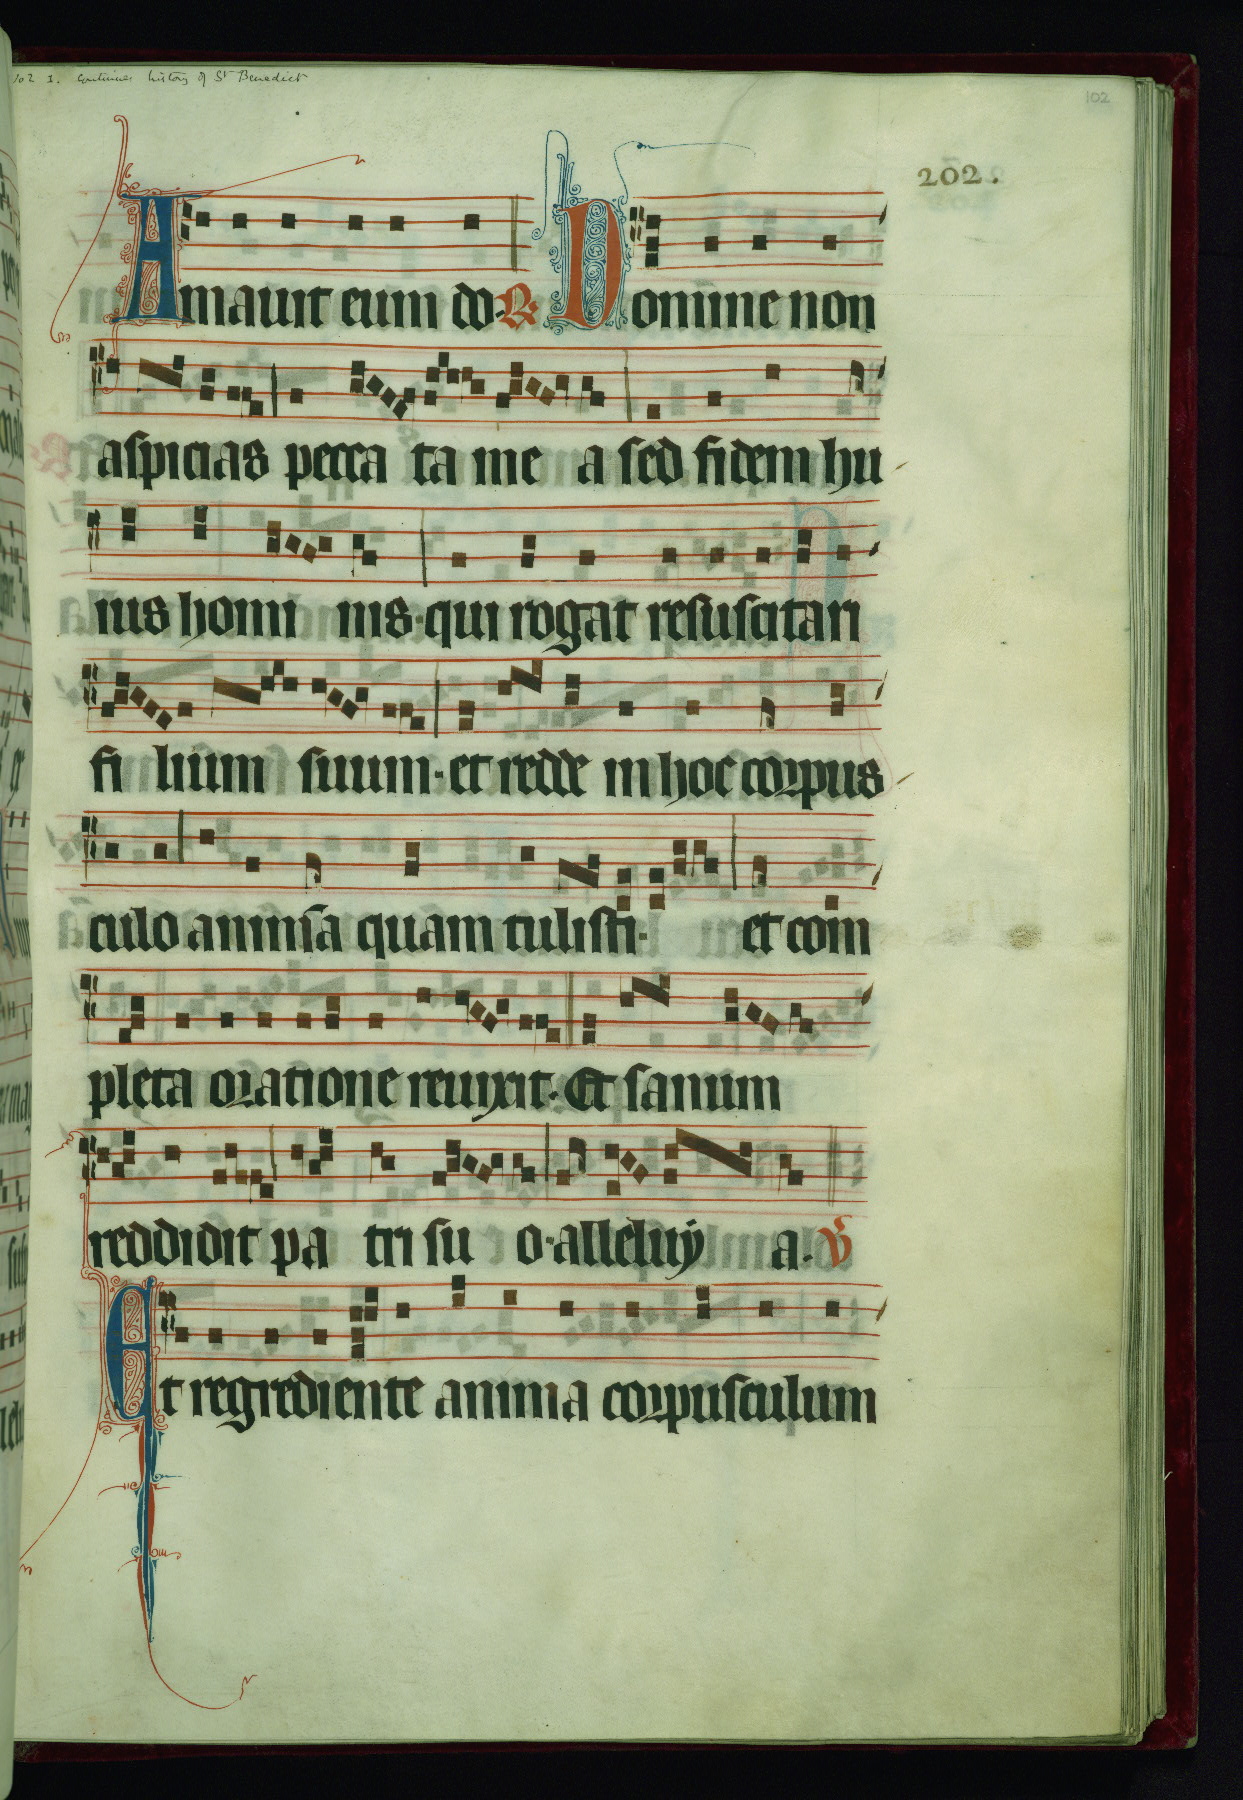 102 I. Continues history of St Benedict
102
202.
Amauit eum do. R. Domine non
aspicias pecca ta me a sed fidem hu
ius homi nis. qui rogat resuscitari
fi lium suum. et redde in hoc corpus
culo animā quam tulisti. et com
pleta oratione reuixit. Et sanum
reddidit pa tri su o. alleluy a. V
Et regrediente anima corpusculum